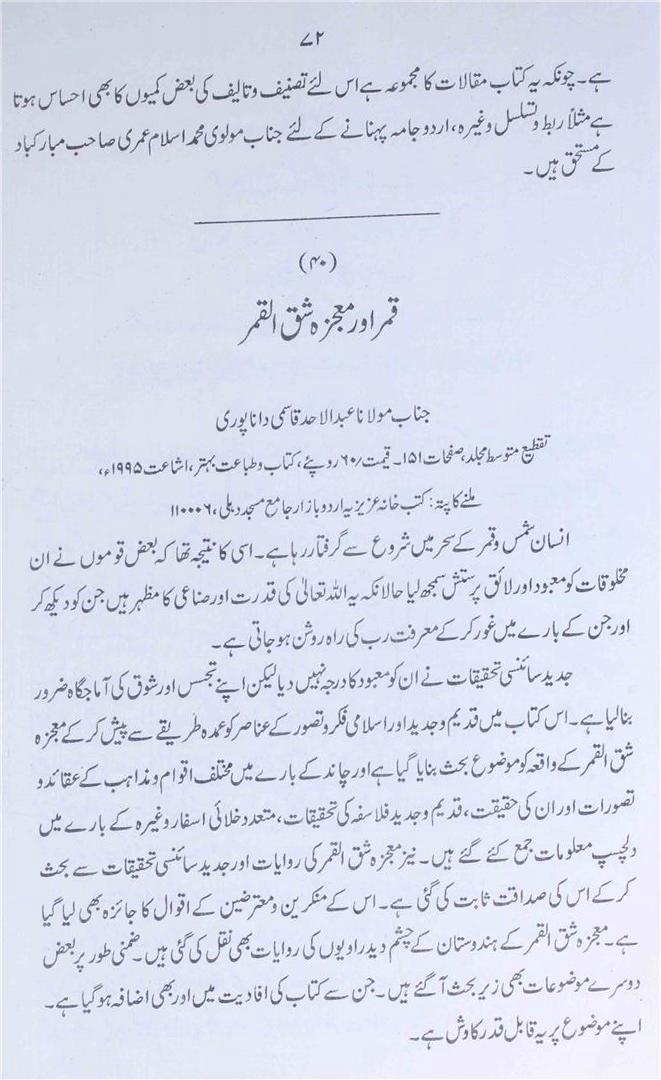 ۷۲
ہے۔ چونکہ یہ کتاب مقالات کا مجموعہ ہے اس لئے تصنیف و تالیف کی بعض کمیوں کا بھی احساس ہوتا
ہے مثلاً ربط و تسلسل وغیرہ، اردو جامہ پہنانے کے لئے جناب مولوی محمد اسلام عمری صاحب مبارکباد
کے مستحق ہیں۔
(۴۰)
قمر اور معجزہ شق القمر
جناب مولانا عبدالاحد قاسمی دانا پوری
تقطیع متوسط مجلد، صفحات ۱۵۱۔ قیمت ۶۰/ روپئے، کتاب و طباعت بہتر، اشاعت ۱۹۹۵ء،
ملنے کا پتہ: کتب خانہ عزیزیہ اردو بازار جامع مسجد دہلی، ۱۱۰۰۰۶
انسان شمس و قمر کے سحر میں شروع سے گرفتار رہا ہے۔ اسی کا نتیجہ تھا کہ بعض قوموں نے ان
مخلوقات کو معبود اور لائق پرستش سمجھ لیا حالانکہ یہ اللہ تعالیٰ کی قدرت اور صناعی کا مظہر ہیں جن کو دیکھ کر
اور جن کے بارے میں غور کر کے معرفت رب کی راہ روشن ہو جاتی ہے۔
جدید سائنسی تحقیقات نے ان کو معبود کا درجہ نہیں دیا لیکن اپنے تجسس اور شوق کی آماجگاہ ضرور
بنا لیا ہے۔ اس کتاب میں قدیم و جدید اور اسلامی فکر و تصور کے عناصر کو عمدہ طریقے سے پیش کر کے معجزہ
شق القمر کے واقعہ کو موضوع بحث بنایا گیا ہے اور چاند کے بارے میں مختلف اقوام و مذاہب کے عقائد و
تصورات اور ان کی حقیقت، قدیم و جدید فلاسفہ کی تحقیقات، متعدد خلائی اسفار وغیرہ کے بارے میں
دلچسپ معلومات جمع کئے گئے ہیں۔ نیز معجزہ شق القمر کی روایات اور جدید سائنسی تحقیقات سے بحث
کر کے اس کی صداقت ثابت کی گئی ہے۔ اس کے منکرین و معترضین کے اقوال کا جائزہ بھی لیا گیا
ہے۔ معجزہ شق القمر کے ہندوستان کے چشم دید راویوں کی روایات بھی نقل کی گئی ہیں۔ ضمنی طور پر بعض
دوسرے موضوعات بھی زیر بحث آ گئے ہیں۔ جن سے کتاب کی افادیت میں اور بھی اضافہ ہو گیا ہے۔
اپنے موضوع پر یہ قابل قدر کاوش ہے۔